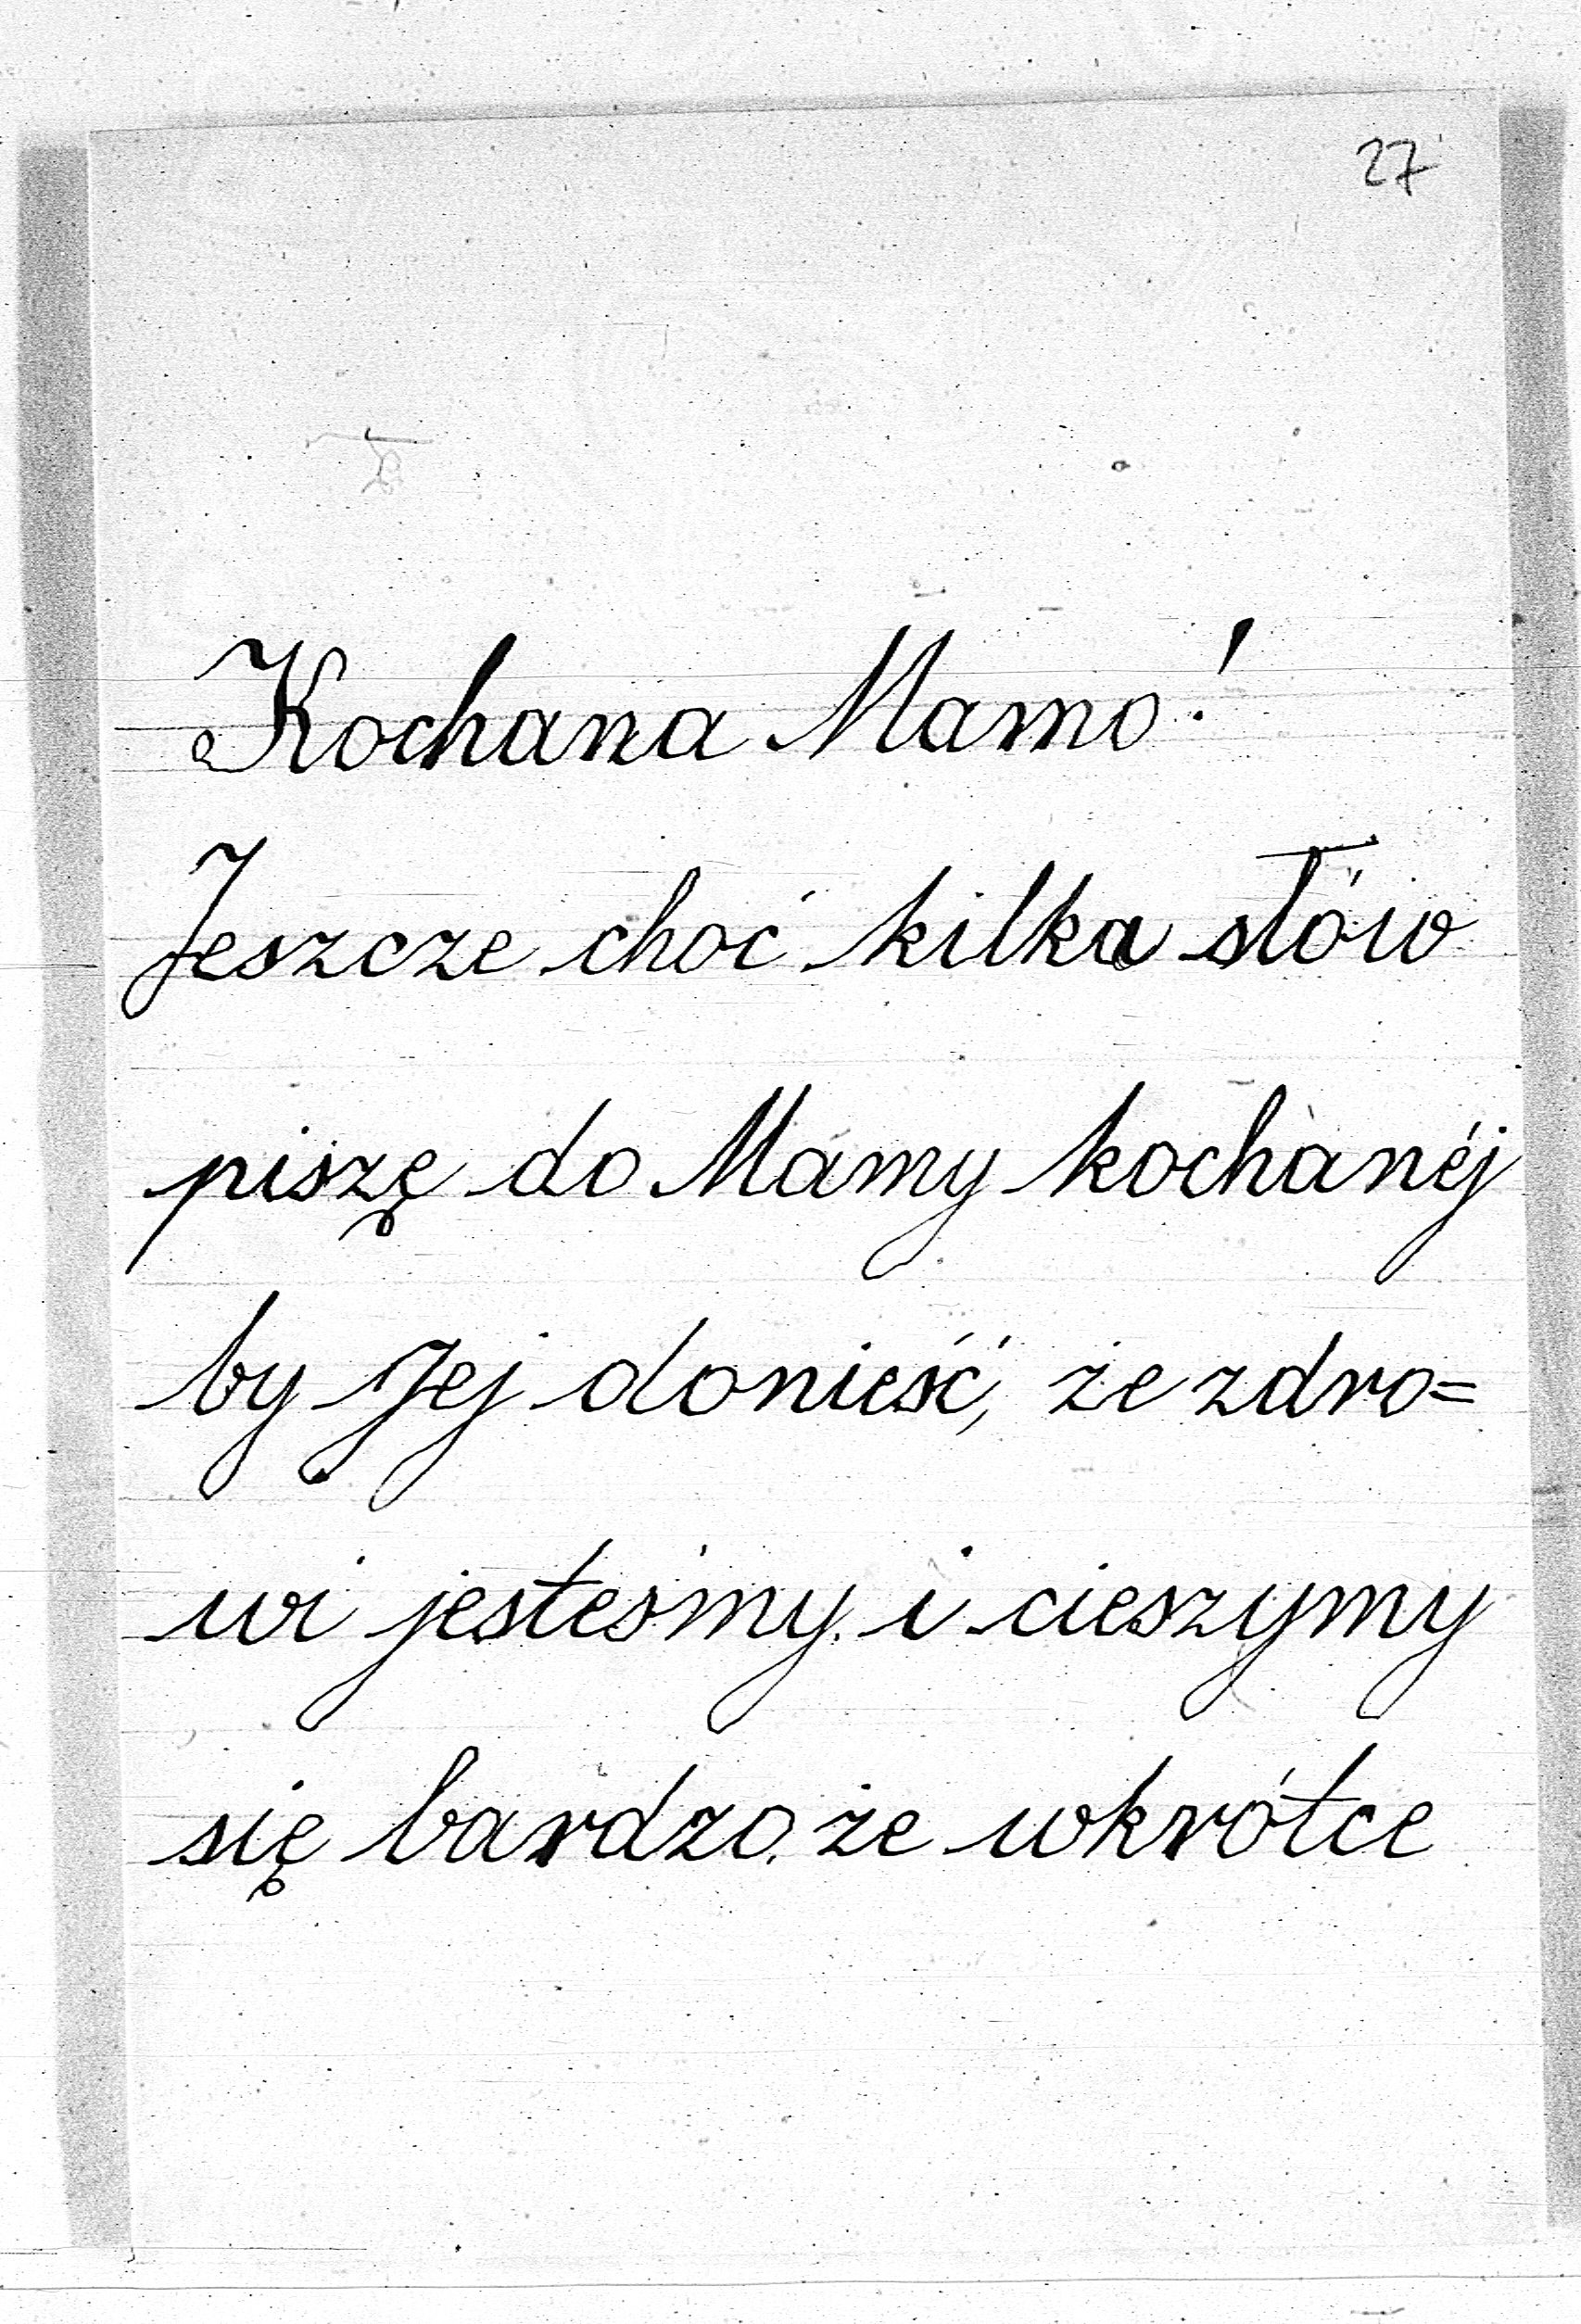 27
Kochana Mamo!
Jeszcze choć kilka słów
piszę do Mamy kochanéj
by Jej donieść, że zdro=
wi jesteśmy i cieszymy
się bardzo, że wkrótce